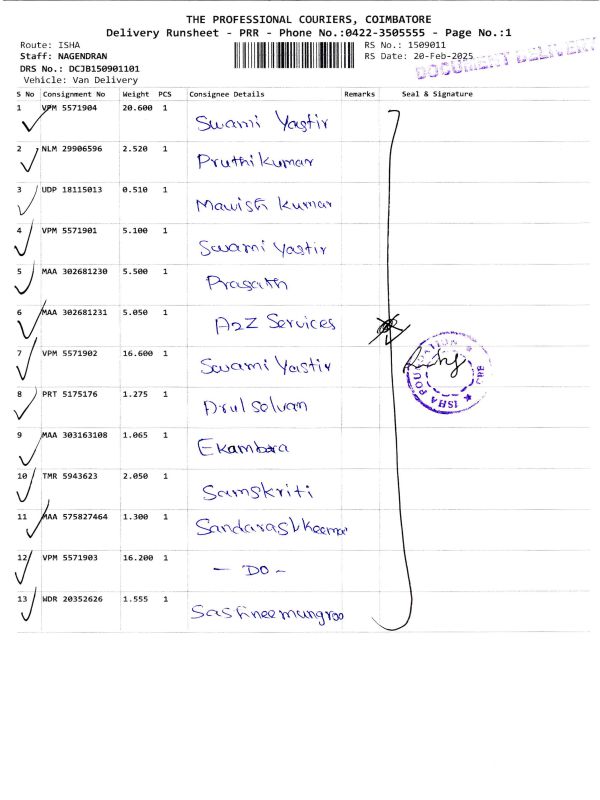 THE PROFESSIONAL COURIERS, COIMBATORE
Delivery Runsheet - PRR - Phone No.:0422-3505555 - Page No.:1
Route: ISHA
RS No.: 1509011
Staff: NAGENDRAN
RS Date: 20-Feb-2025
DOCUMENT DELIVERY
DRS No.: DCJB150901101
Vehicle: Van Delivery
S No Consignment No Weight PCS Consignee Details Remarks Seal & Signature
1 VPM 5571904 20.600 1 Swami Yastir
2 NLM 29906596 2.520 1 Pruthikumar
3 UDP 18115013 0.510 1 Kumar
4 VPM 5571901 5.100 1 Swami Yastir
5 MAA 302681230 5.500 1 Pragath
6 MAA 302681231 5.050 1 A2Z Services
7 VPM 5571902 16.600 1 Swami Yastir
8 PRT 5175176 1.275 1
9 MAA 303163108 1.065 1
10 TMR 5943623 2.050 1 Samskriti
11 MAA 575827464 1.300 1
12 VPM 5571903 16.200 1 - DO -
13 WDR 20352626 1.555 1
ISHA FOUNDATION